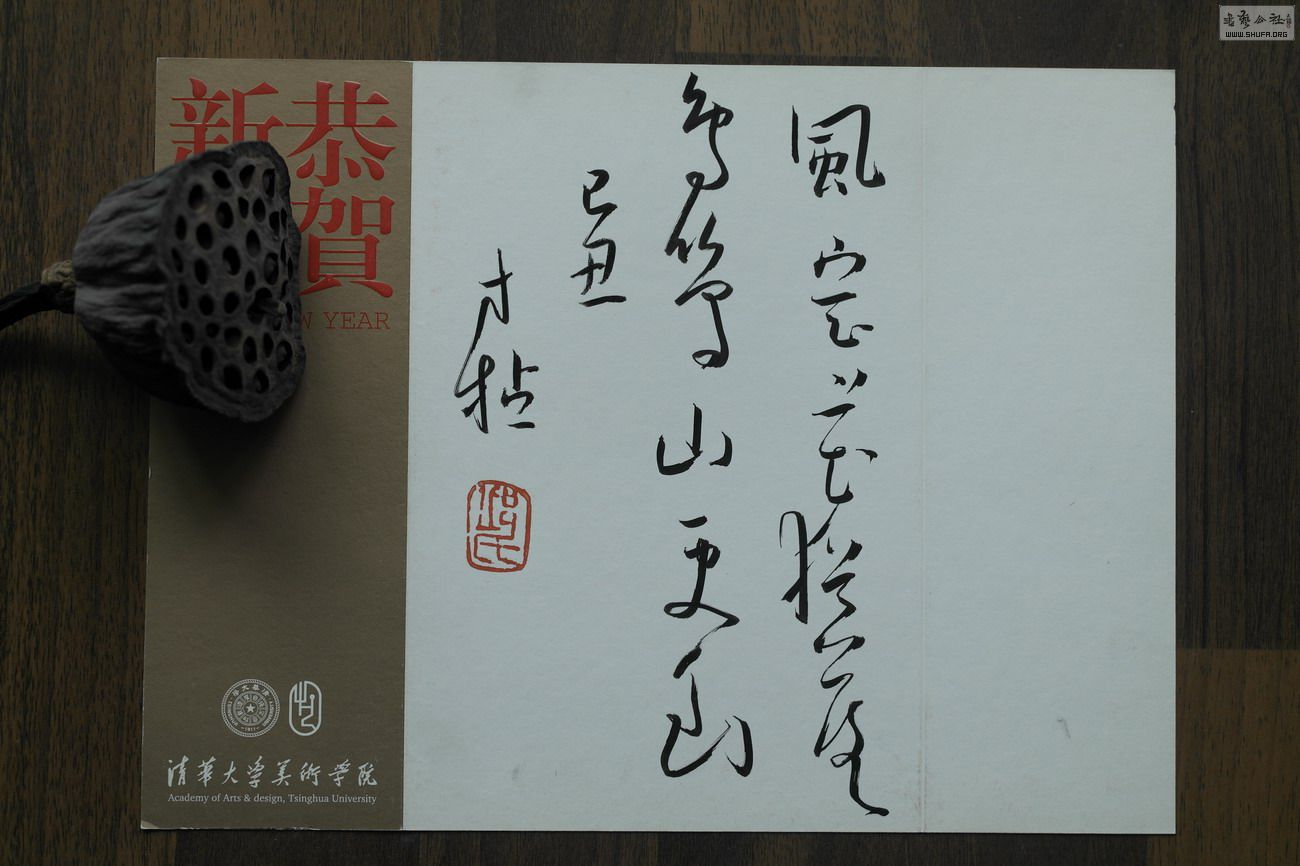 風定花猶落
鳥鳴山更幽
己丑
恭賀
新
YEAR
清華大學美術學院
Academy of Arts & design, Tsinghua University
書藝公社
WWW.SHUFA.ORG